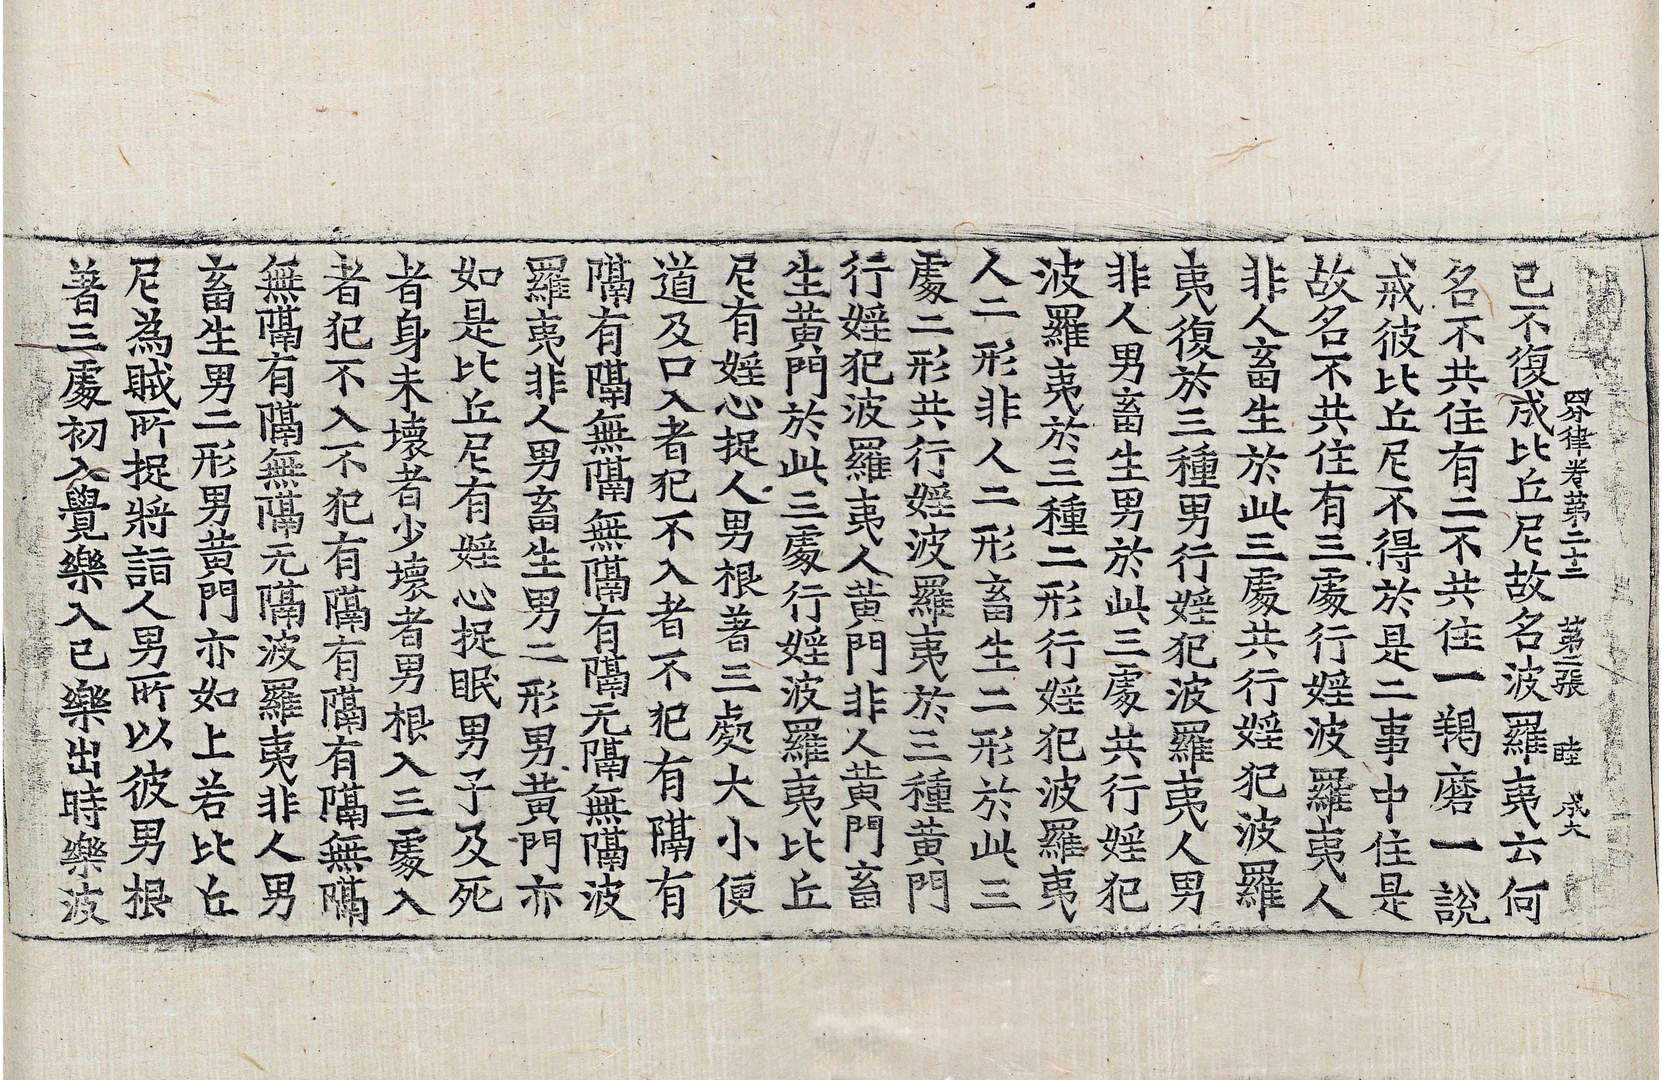 四分律卷第二十二 第二張 睦
已不復成比丘尼故名波羅夷云何
名不共住有二不共住一羯磨一說
戒彼比丘尼不得於是二事中住是
故名不共住有三處行婬波羅夷人
非人畜生於此三處共行婬犯波羅
夷復於三種男行婬犯波羅夷人男
非人男畜生男於此三處共行婬犯
波羅夷於三種二形行婬犯波羅夷
人二形非人二形畜生二形於此三
處二形共行婬波羅夷於三種黃門
行婬犯波羅夷人黃門非人黃門畜
生黃門於此三處行婬波羅夷比丘
尼有婬心捉人男根著三處大小便
道及口入者犯不入者不犯有隔有
隔有隔無隔無隔有隔无隔無隔波
羅夷非人男畜生男二形男黃門亦
如是比丘尼有婬心捉眠男子及死
者身未壞者少壞者男根入三處入
者犯不入不犯有隔有隔有隔無隔
無隔有隔無隔无隔波羅夷非人男
畜生男二形男黃門亦如上若比丘
尼為賊所捉將詣人男所以彼男根
著三處初入覺樂入已樂出時樂波